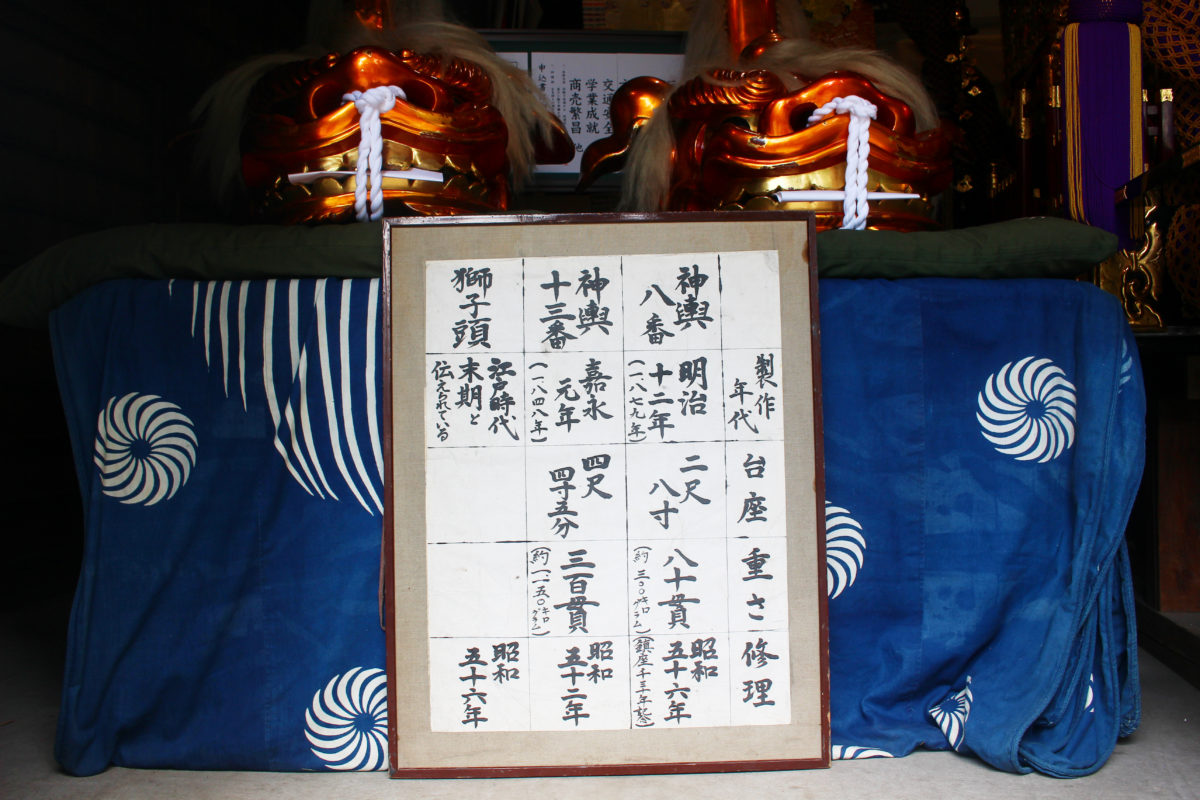 交通安全
学業成就
商売繁昌
他
製作
年代
台座
重さ
修理
神輿
八番
明治
十二年
(一八七九年)
二尺
八寸
八十貫
(約三〇〇キログラム)
昭和
五十六年
神輿
十三番
嘉永
元年
(一八四八年)
四尺
四寸五分
三百貫
(約一一五〇キログラム)
昭和
五十二年
獅子頭
江戸時代
末期と
伝えられている
昭和
五十六年